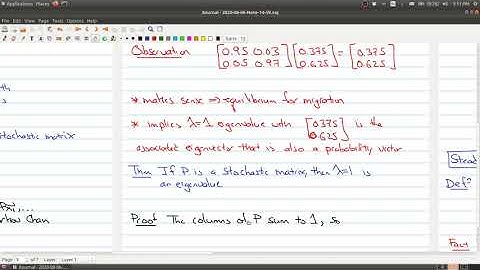 Applications Places
5:11 PM
Xournal - 2020-08-06-Note-14-VV.xoj
File Edit View Journal Tools Options Help
Observation [0.95 0.03 0.05 0.97] [0.375 0.625] = [0.375 0.625]
* makes sense ⇒ equilibrium for migration
* implies λ=1 eigenvalue with [0.375 0.625] is the
associated eigenvector that is also a probability vector
Thm If P is a stochastic matrix, then λ=1 is
an eigenvalue
Proof The columns of P sum to 1, so
th
s
stochastic matrix
Px̄₁, ...
rkov Chain
Stead
Def
Fact
Page
of 7
Layer: